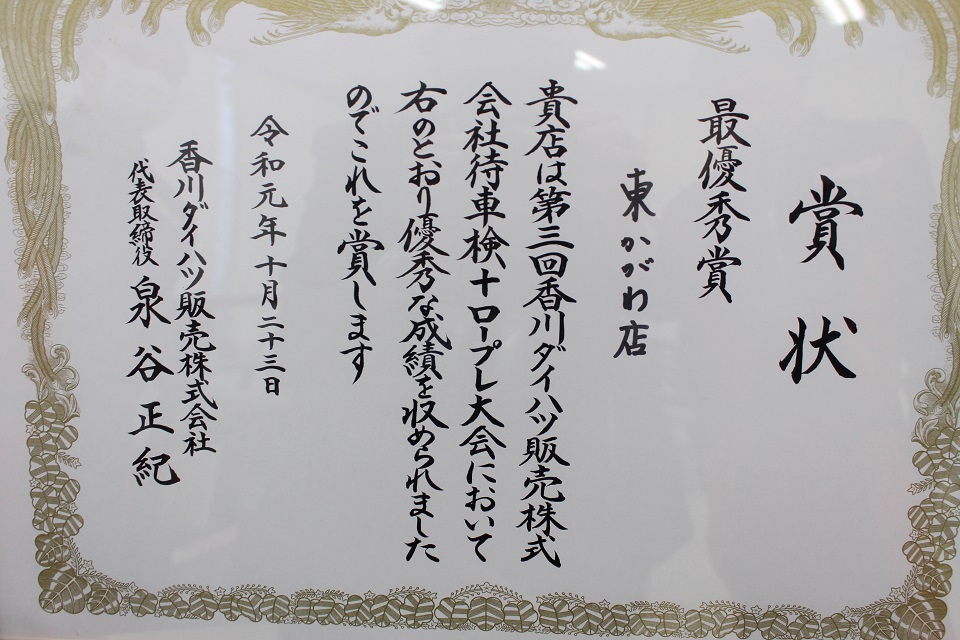 賞状
最優秀賞
東かがわ店
貴店は第三回香川ダイハツ販売株式
会社待車検十ロープレ大会において
右のとおり優秀な成績を収められました
のでこれを賞します
令和元年十月二十三日
香川ダイハツ販売株式会社
代表取締役 泉谷正紀